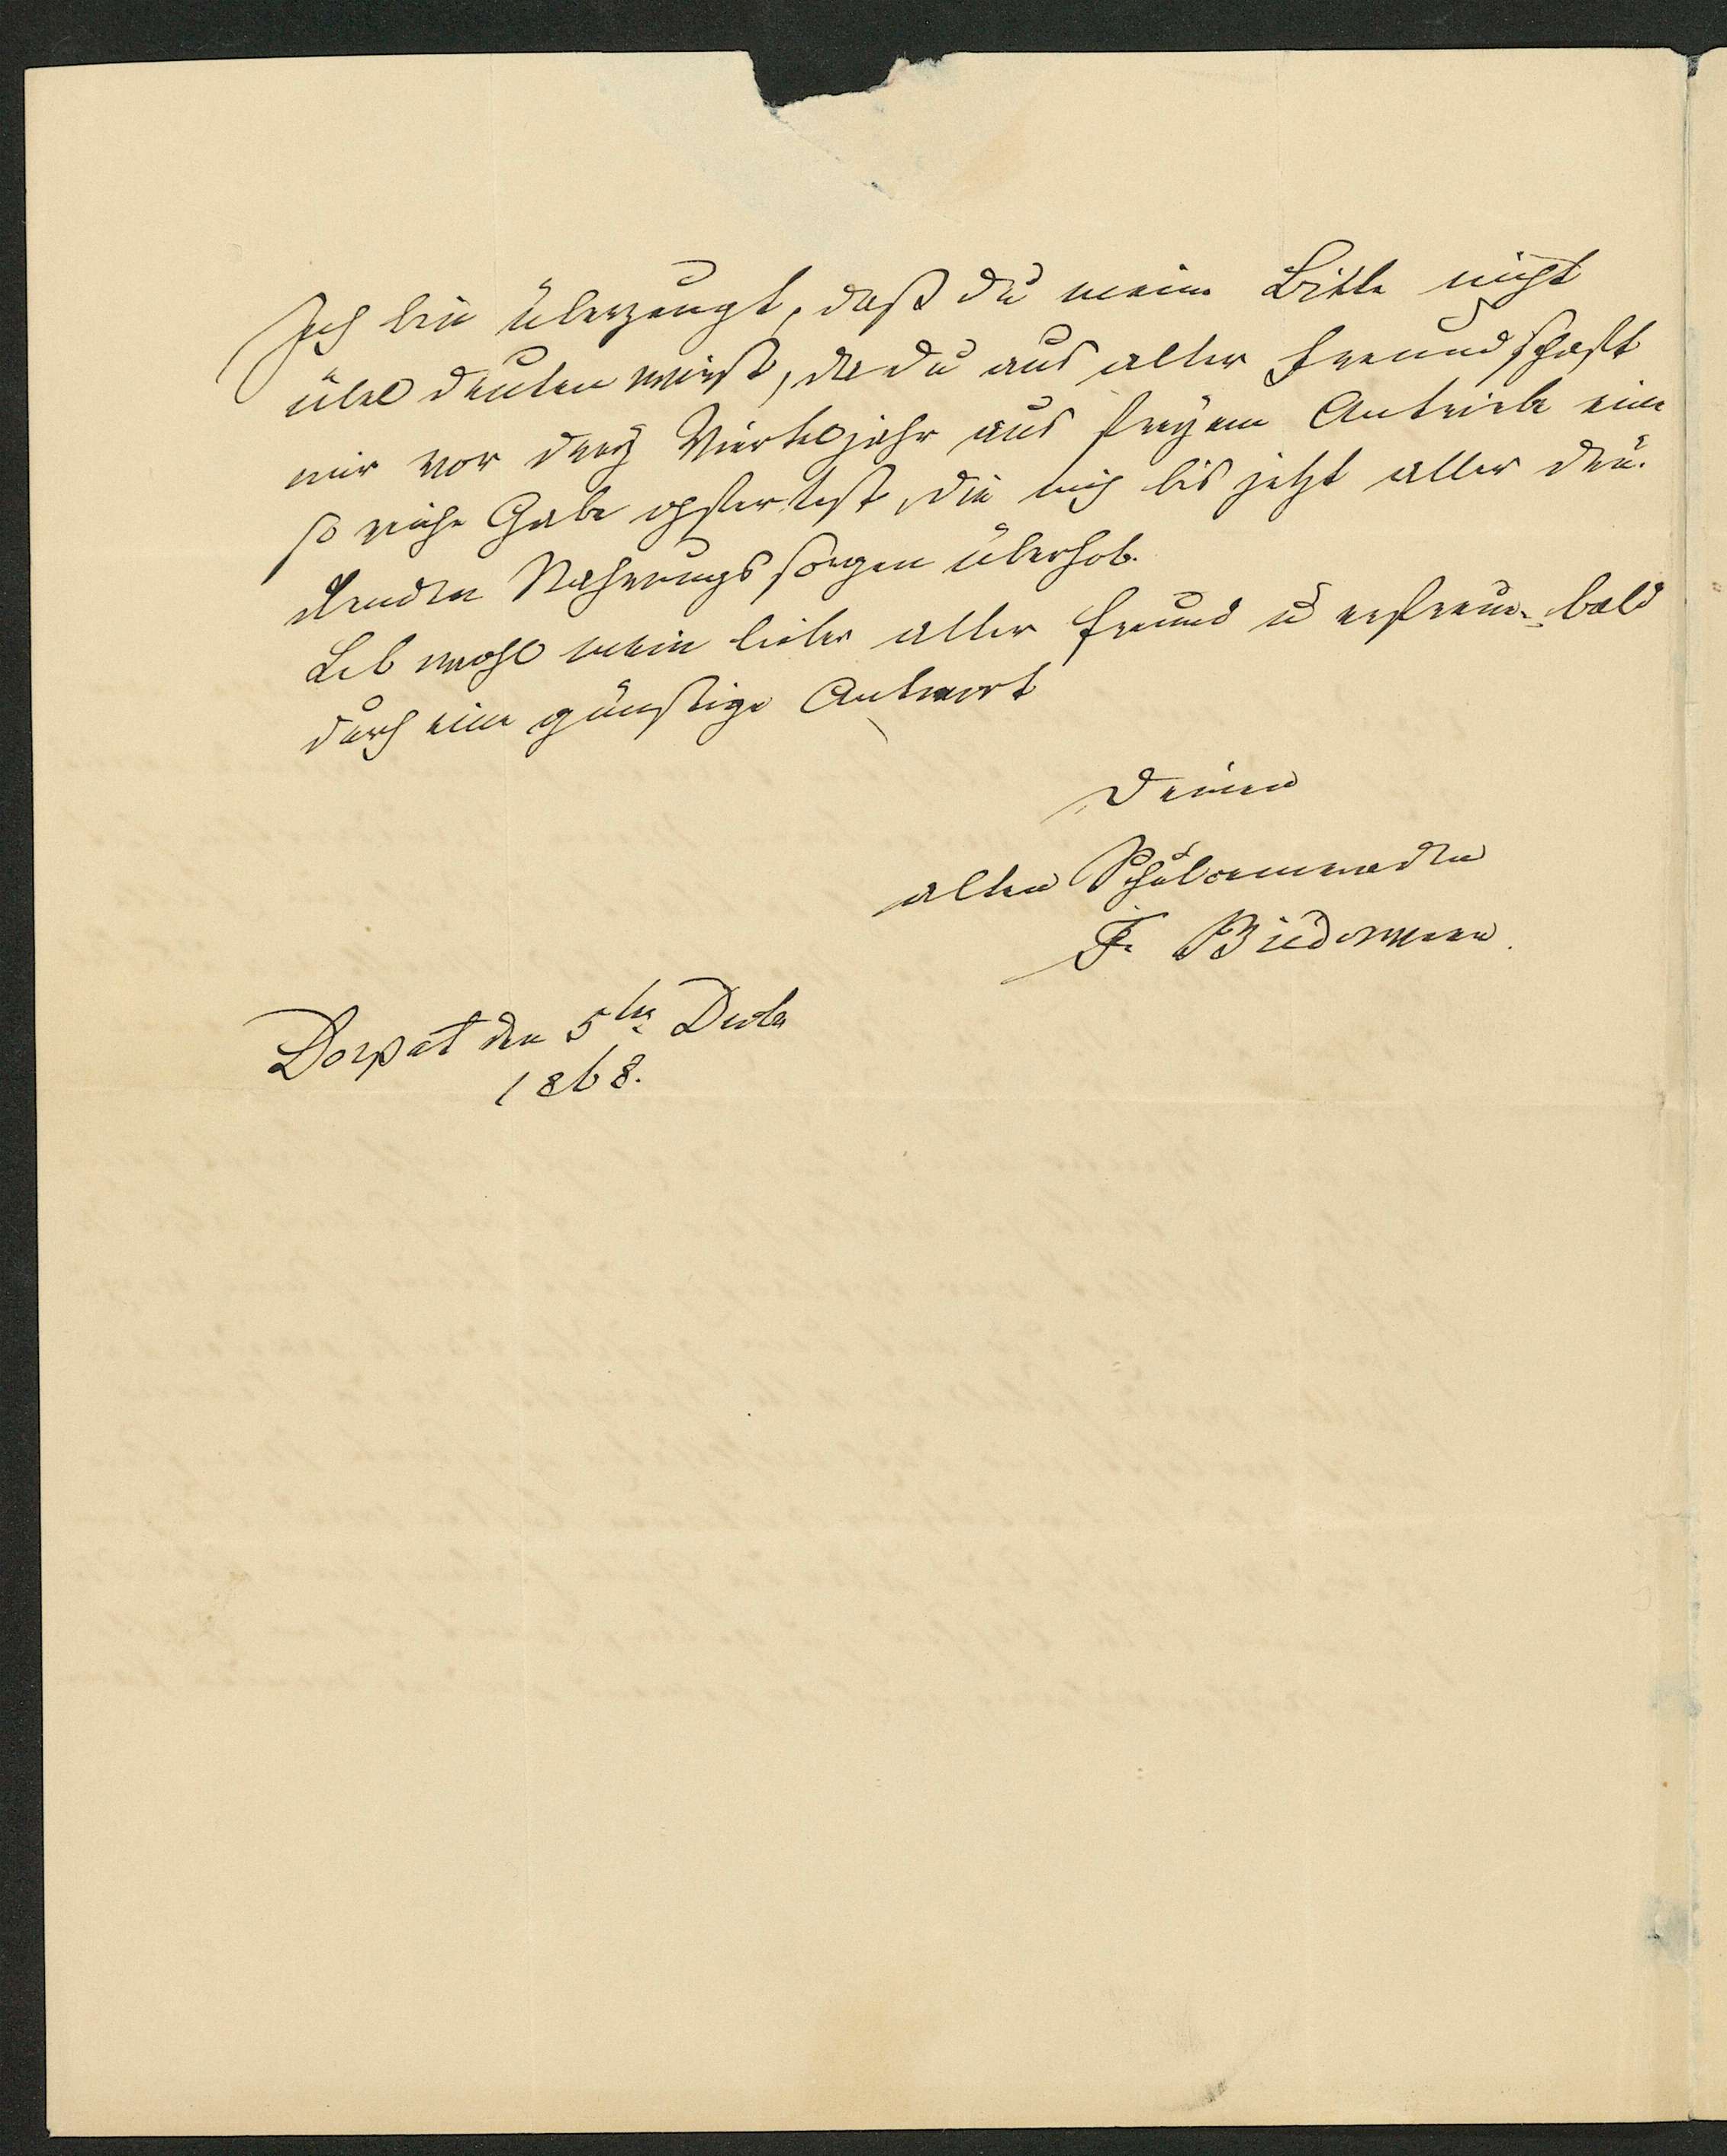 Ich bin überzeugt, daß Du meine Bitte nicht
übel deuten wirst, da Du aus alter Freundschaft
mir vor drey Vierteljahr aus freyem Antriebe eine
so reiche Gabe opfertest, die mich bis jetzt aller drü-
ckenden Nahrungssorgen überhob.
Leb wohl mein lieber alter Freund u erfreue bald
durch eine günstige Antwort
Deinen
alten Schulcameraden
F. Biedermann.
Dorpat den 5ten
1868.